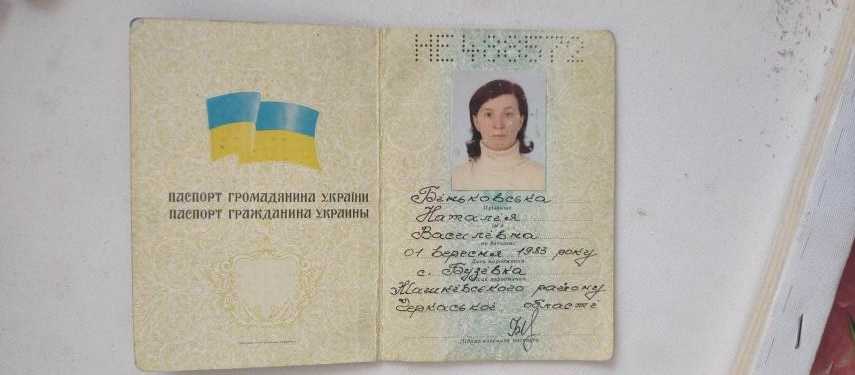 ПАСПОРТ ГРОМАДЯНИНА УКРАЇНИ
ПАСПОРТ ГРАЖДАНИНА УКРАИНЫ
НЕ 486572
Беньковська
Прізвище
Наталія
Ім'я
Василівна
по батькові
01 вересня 1983 року
Дата народження
с. Бузівка
Місце народження
Жашківського району
Черкаської області
Підпис власника паспорта